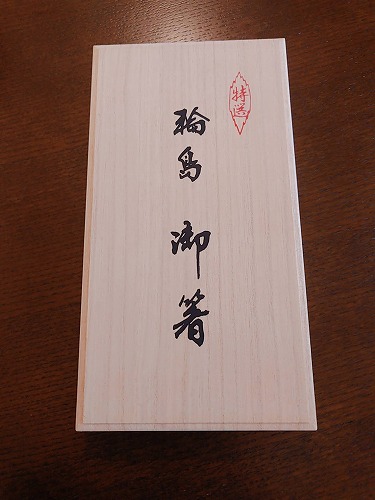 特選
輪島 御箸